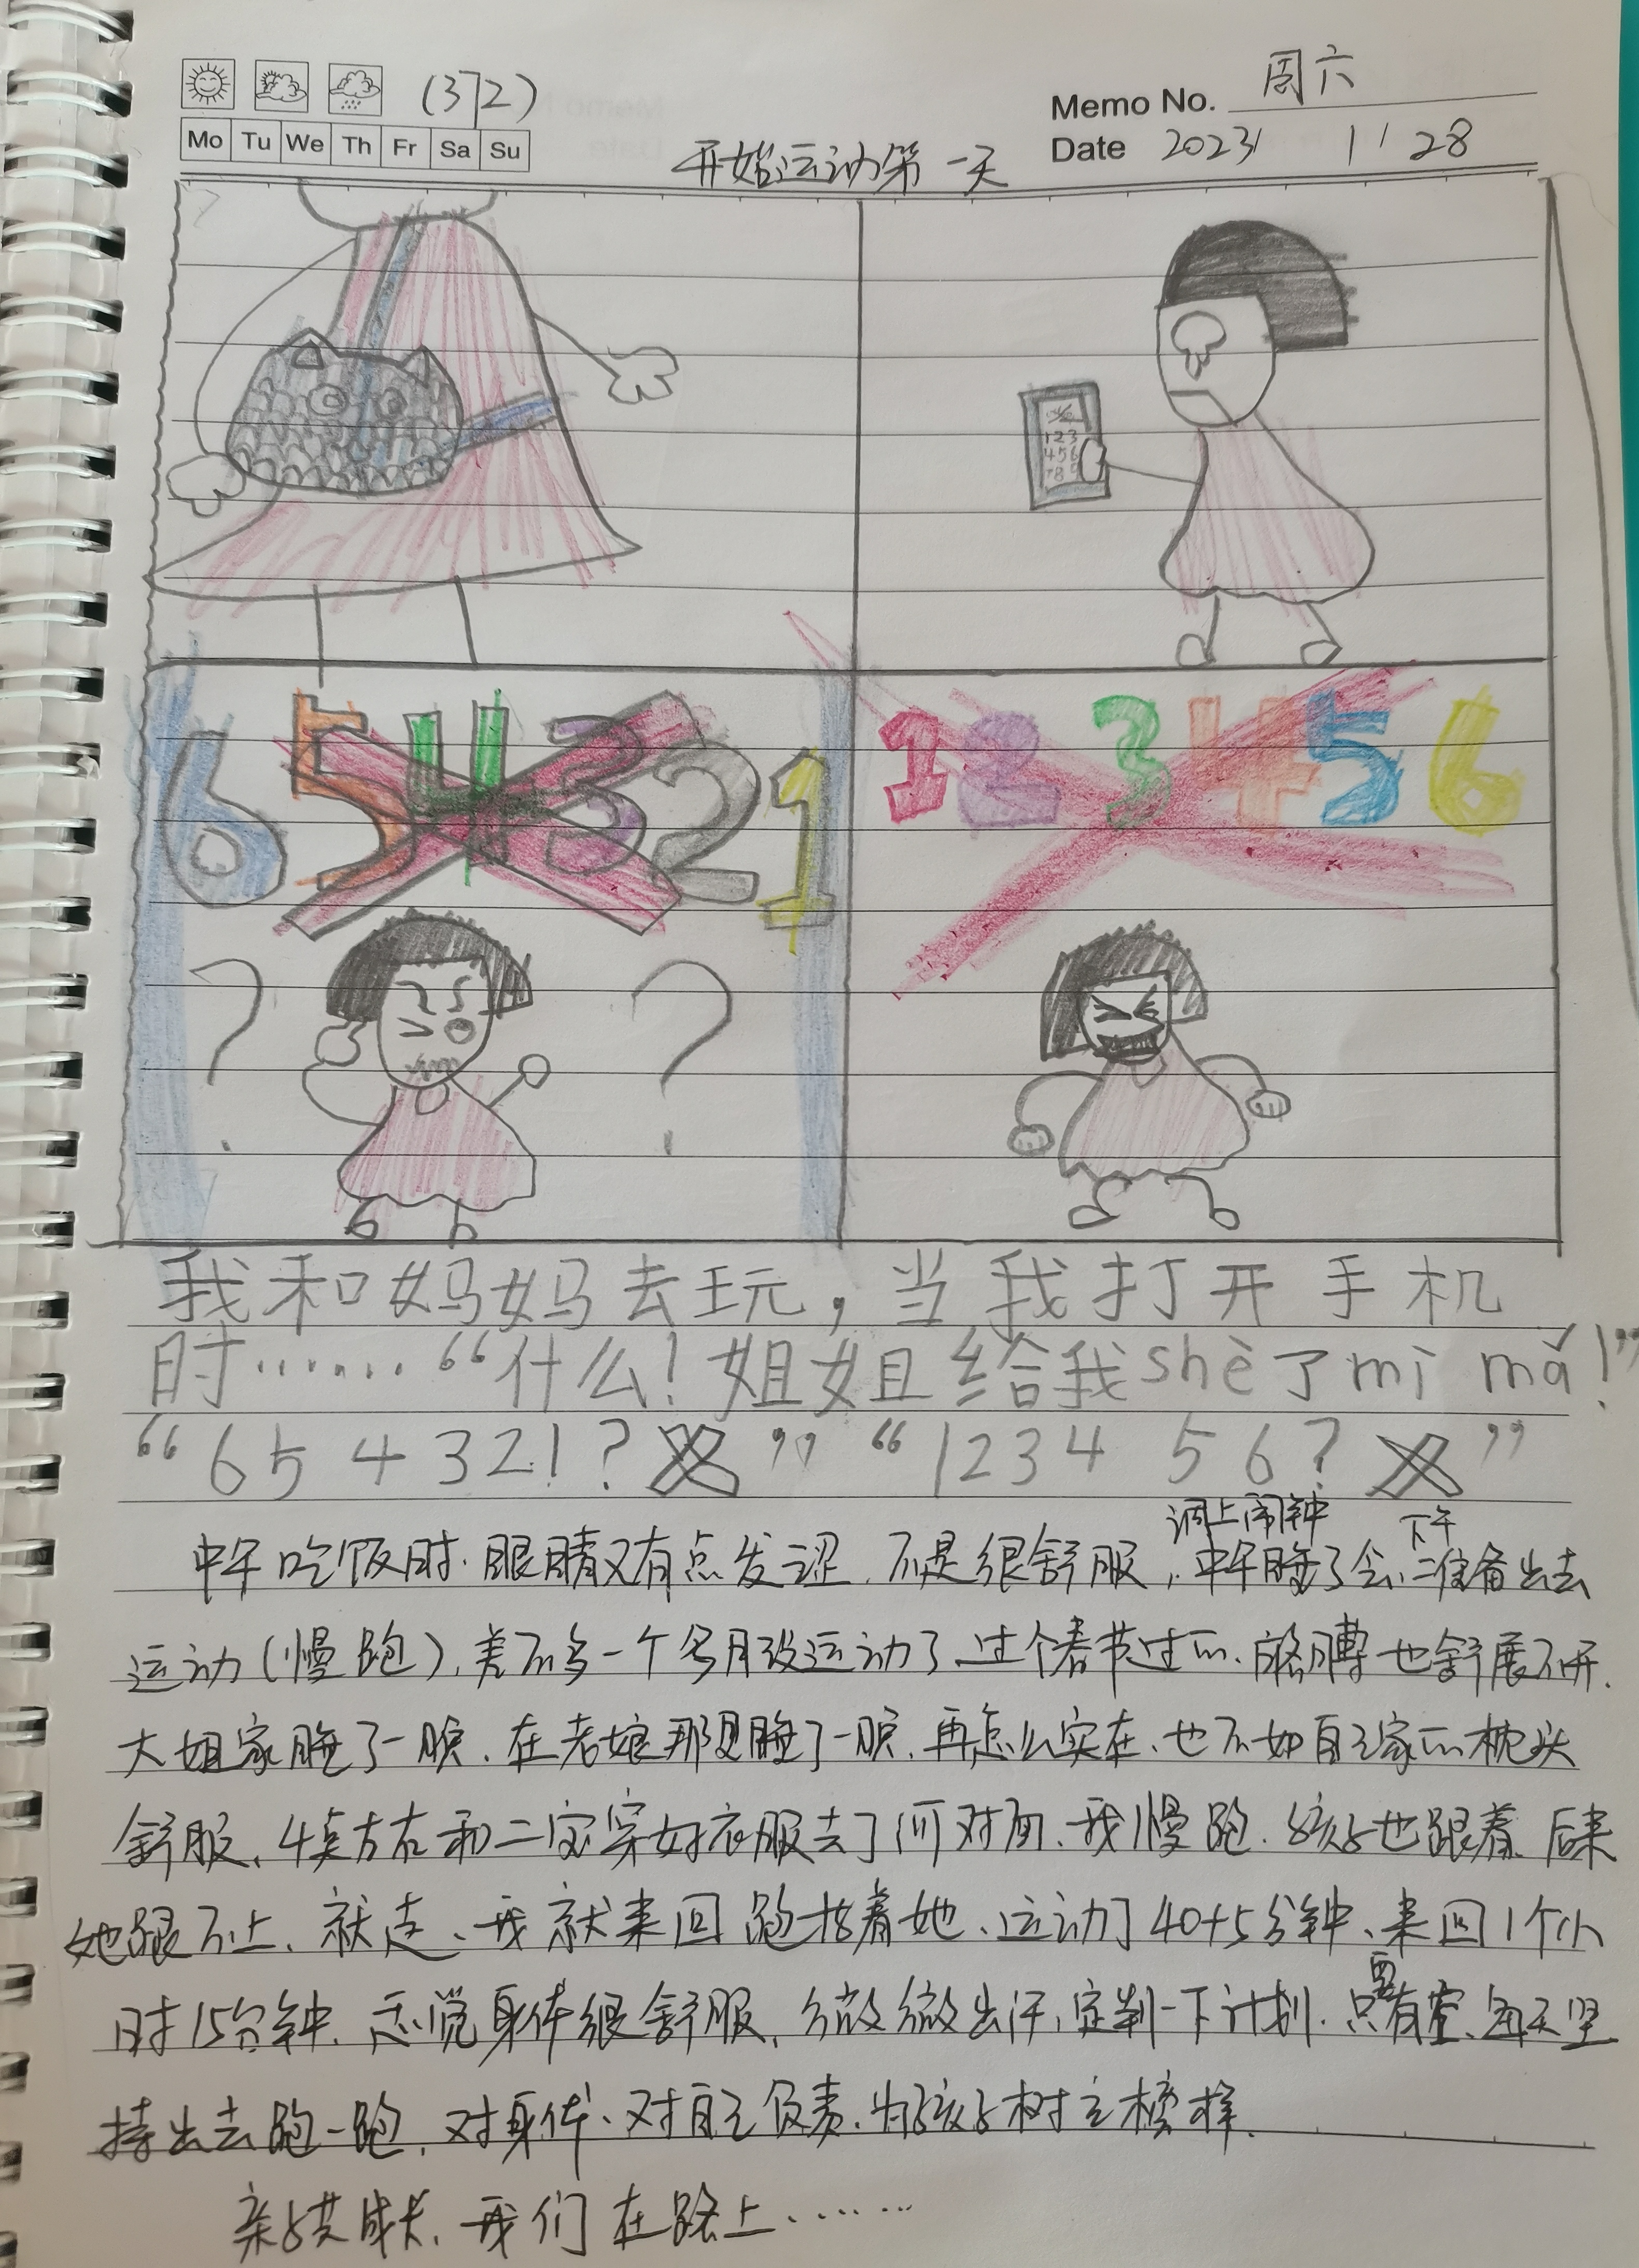 (372)
Memo No. 周六
Mo Tu We Th Fr Sa Su
Date 2023 1 28
开始运动第一天
123
456
789
6 5 4 3 2 1
1 2 3 4 5 6
? ?
我和妈妈去玩，当我打开手机
时……“什么！姐姐给我shè了mì mǎ！”
“654321？×”“123456？×”
调上闹钟 下午
中午吃饭时.眼睛又有点发涩.不是很舒服，中午睡了会、准备出去
运动(慢跑)、差不多一个多月没运动了、过个春节过的、胳膊也舒展不开.
大姐家睡了一晚、在老娘那里睡了一晚、再怎么实在、也不如自己家的枕头
舒服、4点左右和二宝穿好衣服去了河对面、我慢跑.孩子也跟着、后来
她跟不上、就走、我就来回跑接着她、运动了40+5分钟、来回1个小
时15分钟.感觉身体很舒服、微微出汗，定制一下计划.只要有空、每天坚
持出去跑一跑，对身体、对自己负责.为孩子树立榜样.
亲子共成长、我们在路上……